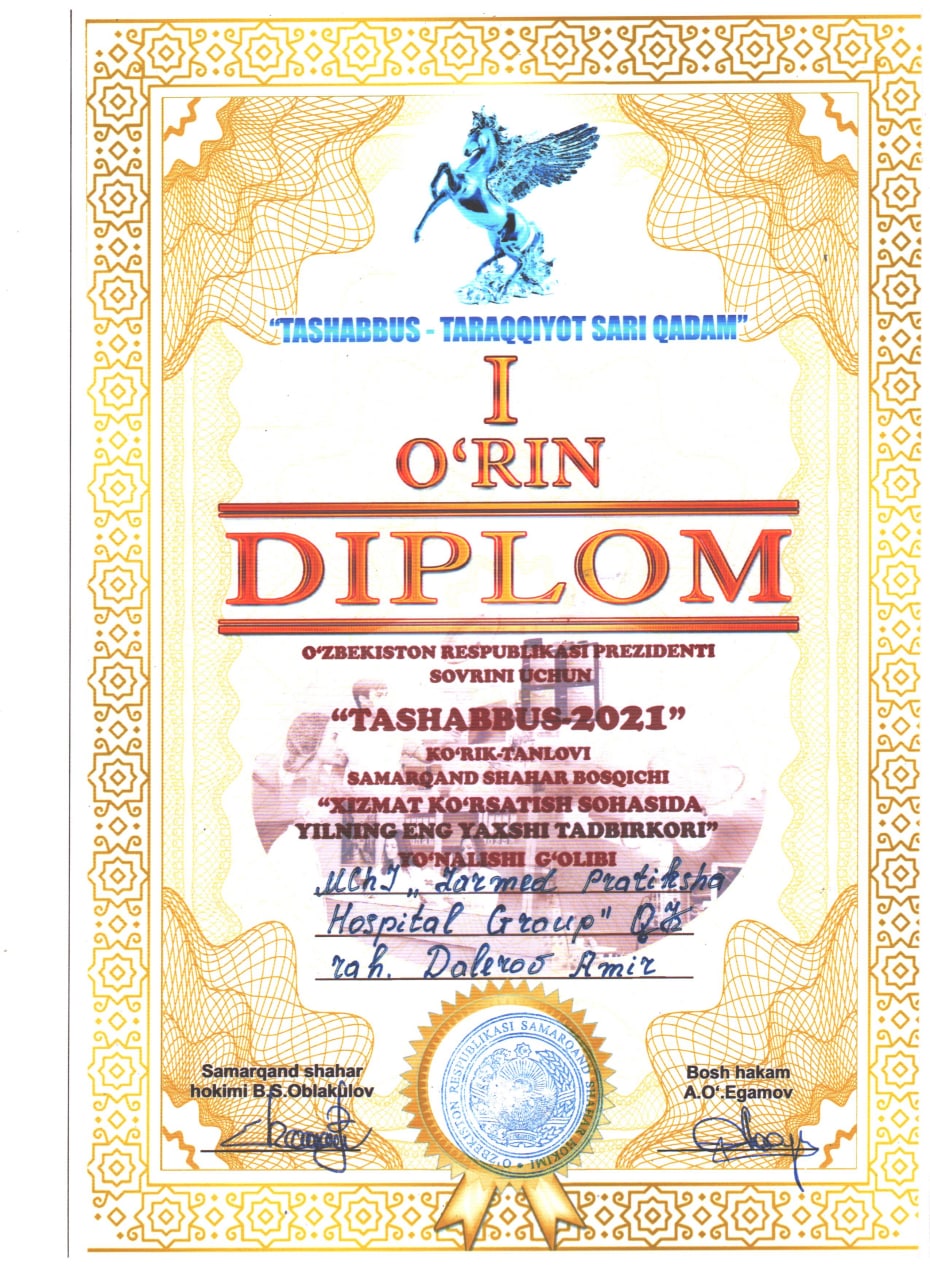 “TASHABBUS - TARAQQIYOT SARI QADAM”
I
O‘RIN
DIPLOM
O‘ZBEKISTON RESPUBLIKASI PREZIDENTI
SOVRINI UCHUN
“TASHABBUS-2021”
KO‘RIK-TANLOVI
SAMARQAND SHAHAR BOSQICHI
“XIZMAT KO‘RSATISH SOHASIDA
YILNING ENG YAXSHI TADBIRKORI”
YO‘NALISHI G‘OLIBI
MChJ „Zarmed Pratiksha
Hospital Group" QK
rah. Dalerov Amir
O‘ZBEKISTON RESPUBLIKASI SAMARQAND SHAHAR HOKIMI
Samarqand shahar
hokimi B.S.Oblakulov
Bosh hakam
A.O‘.Egamov